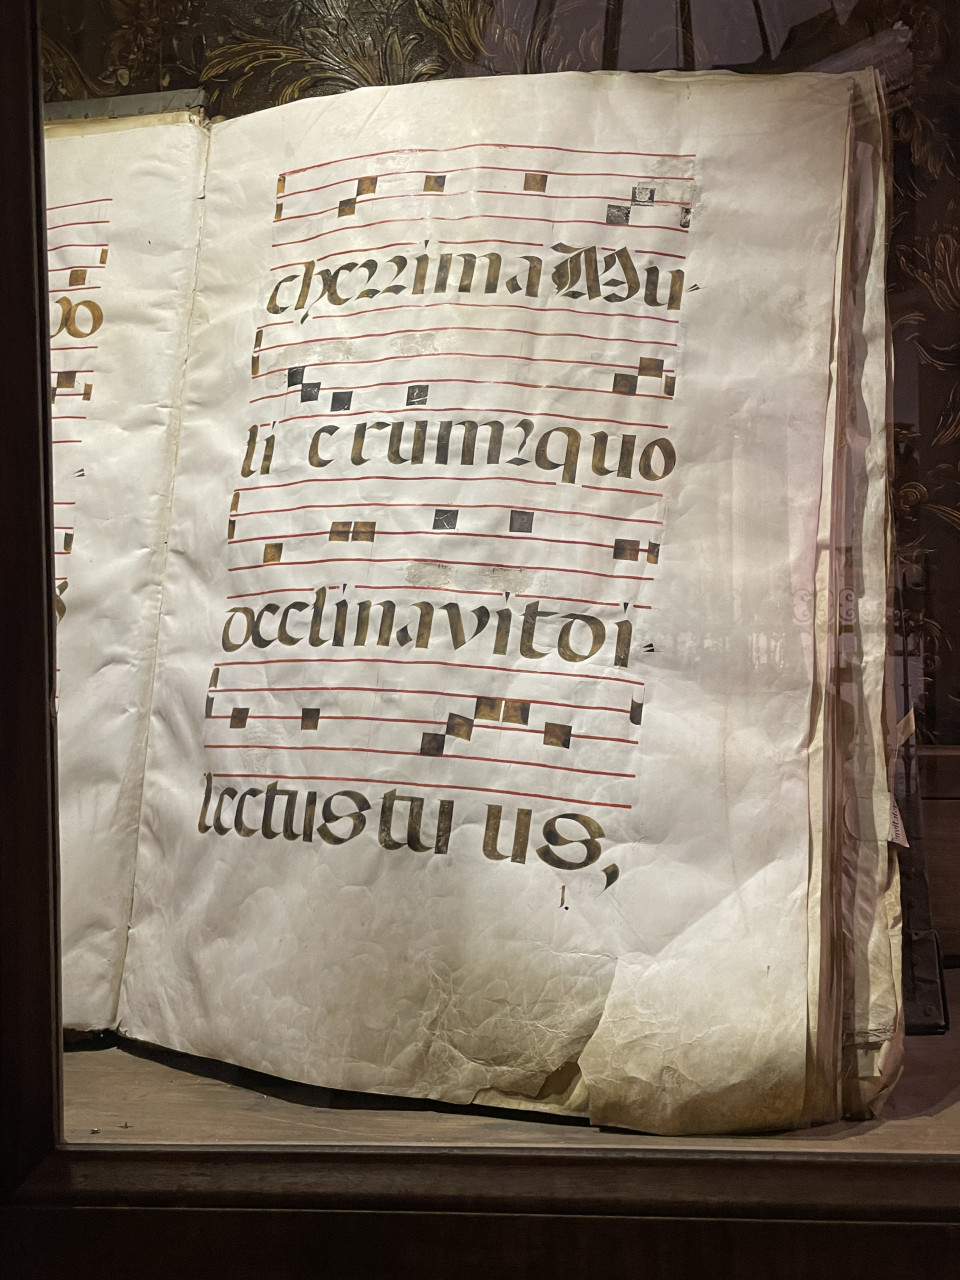 vo
cherrima Mu-
li crum: quo
occlinavit di-
lectus tu us,
1.